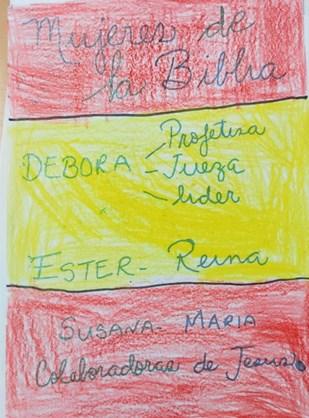 Mujeres de
la Biblia
Profetisa
DEBORA - Jueza
líder
ESTER - Reina
SUSANA - MARIA
Colaboradoras de Jesus.